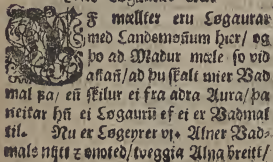 Ef mællter eru Løgauras
med Landsmoñum hier/ og
þo ad Madur mæle so vid
añañ/ ad þu skalt mier Vad
mal fa/ eñ skilur ei fra adra Aura/ þa
neitar hñ ei Løgaurū ef ei er Vadmal
til. Nu er Løgeyrer vj. Alner Vad-
mals nijtt z onoted/ tveggia Alna breitt/